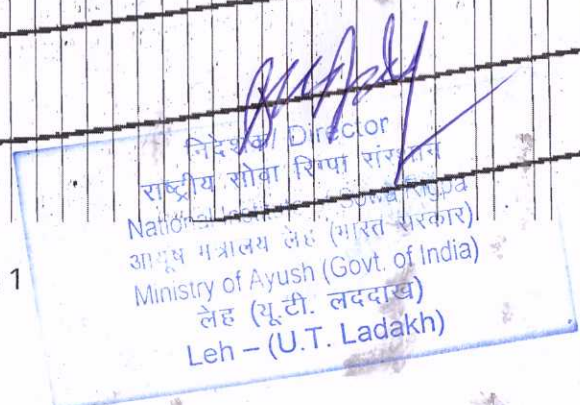 निदेशक/ Director
राष्ट्रीय सोवा रिग्पा संस्थान
National Institute of Sowa Rigpa
आयुष मंत्रालय लेह (भारत सरकार)
1
Ministry of Ayush (Govt. of India)
लेह (यू.टी. लददाख)
Leh – (U.T. Ladakh)